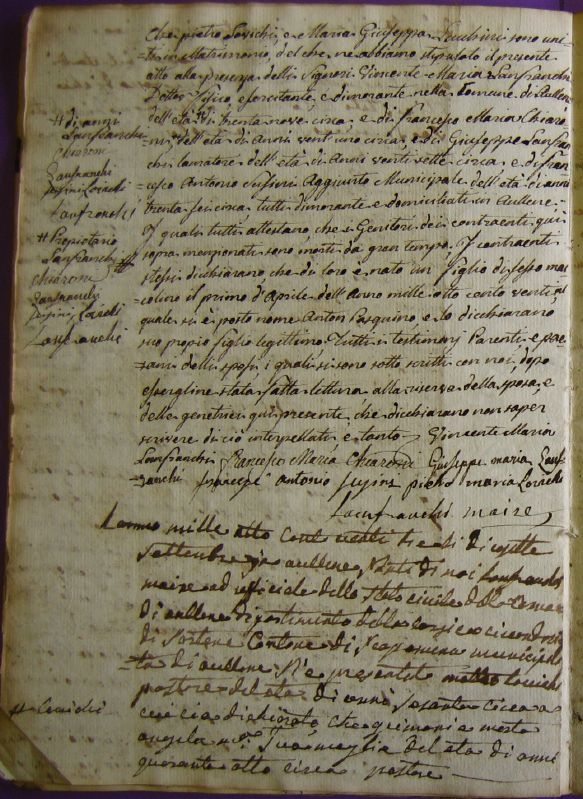 che pietro Lovichi, e Maria Giuseppa Susini sono uni-
ti in Matrimonio, del che ne abbiamo stipulato il presente
atto alla presenza delli Signori Vincente Maria Lanfranchi
Dottor Fisico esercitante, e dimorante nella Comune di Aullene
dell'età # di trenta nove circa e di Francesco Maria Chiaro-
ni dell'età di Anni vent'uno circa, e di Giuseppe Lanfran-
chi lavratore dell'età di Anni venti sette circa e di Fran-
cesco Antonio Susini Aggiunto Municipale dell'età di anni
trenta sei circa tutti dimorante e domiciliati in Aullene.
I quali tutti attestano che i Genitori dei contraenti qui
sopra menzionati sono morti da gran tempo. I contraenti
stessi dicchiarano che di loro è nato un figlio di sesso mas-
colino il primo d'Aprile dell'Anno mille otto cento venti al
quale si è posto nome Anton Pasquino e lo dicchiarano
suo propio figlio legittimo. Tutti i testimonj Parenti e
delli sposi i quali si sono sotto scritti con noi, dopo
essergline stata fatta lettura alla riserva della sposa, e
della genetrice qui presente, che dicchiarano non saper
scrivere di ciò interpellati e tanto Vincente Maria
Lanfranchi Francesco Maria Chiaroni Giuseppe maria Lanf-
ranchi Antonio Susini pietro maria Lovichi
Lanfranchi maire
# di anni
Lanfranchi
Chiaroni
Lanfranchi
Susini Lovichi
Lanfranchi
Lanfranchi
Chiaroni
Lanfranchi
Susini Lovichi
Lanfranchi
L'anno mille otto cento venti tre li di
Settembre in aullene, di noi Lanfranchi
maire ed ufficiale dello stato civile della comune
di aullene Dipartimento della corsica circondario
di Sartene Cantone di municipalità
di aullene Si è presentato matteo
pastore del età di anni sesanta circa
dichiarato che
angela Sua moglia del età di anni
quaranta otto circa pastore